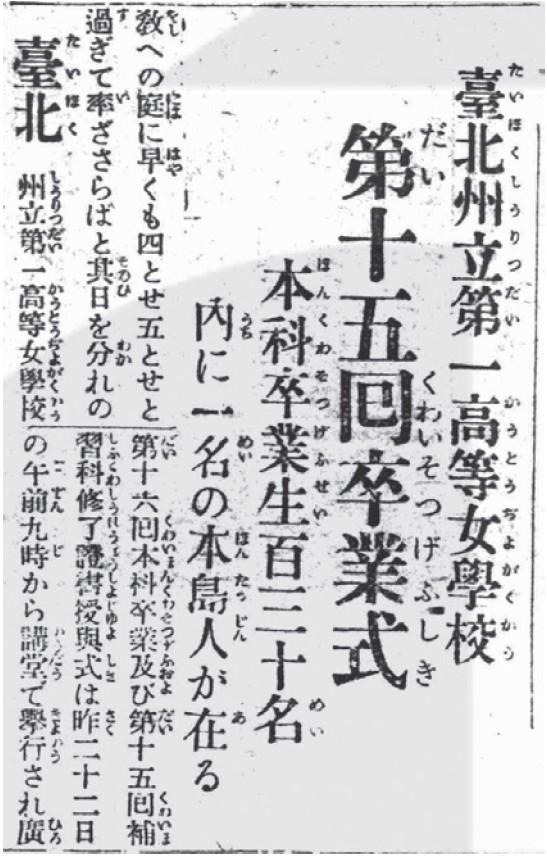 臺北州立第一高等女學校
第十五回卒業式
本科卒業生百三十名
内に一名の本島人が在る
教への庭に早くも四とせ五とせと
過ぎて率ざさらばと其日を分れの
臺北 州立第一高等女學校
第十六回本科卒業及び第十五回補
習科修了證書授與式は昨二十二日
の午前九時から講堂で擧行され廣